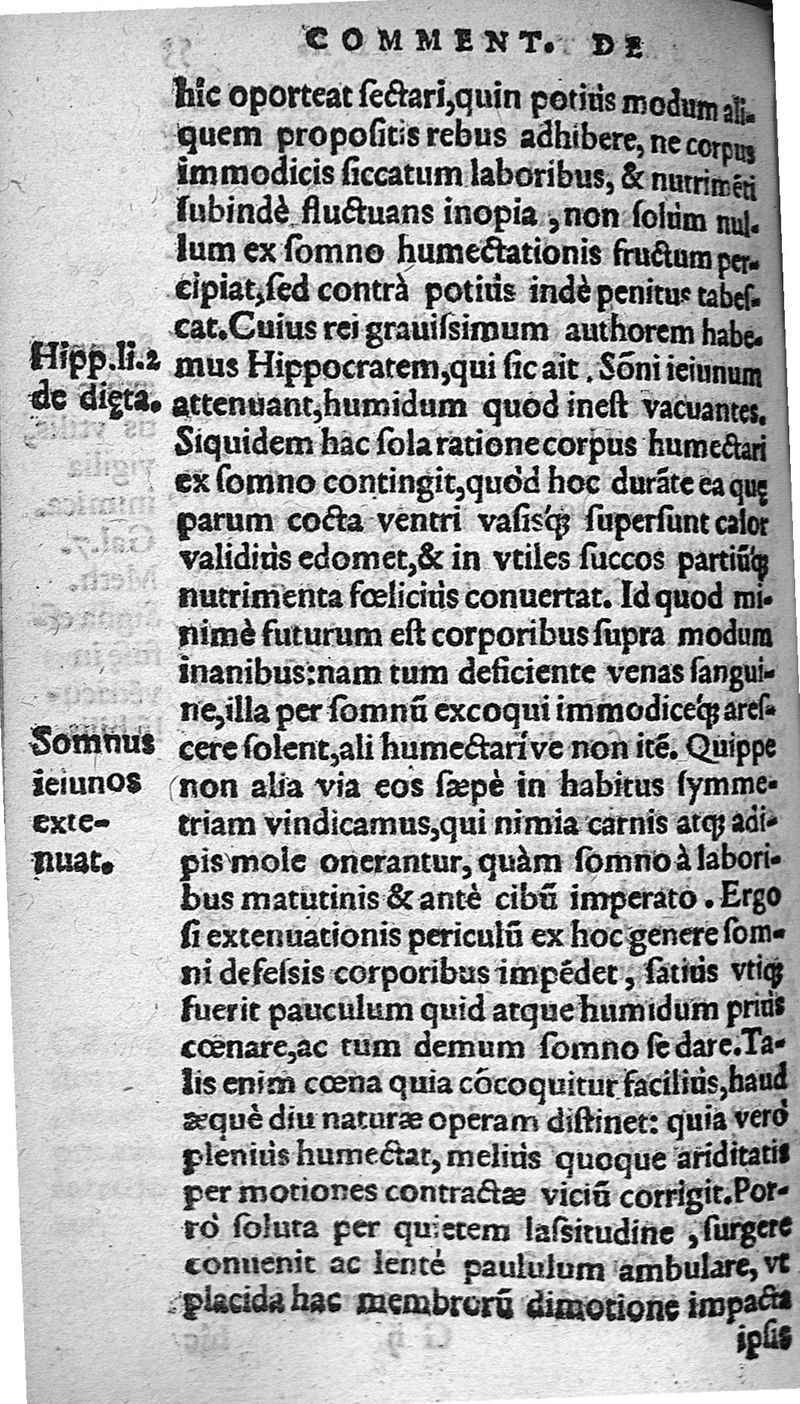 COMMENT. DE
hîc oporteat ſectari,quin potiùs modum ali-
quem propoſitis rebus adhibere, ne corpus
immodicis ſiccatum laboribus, & nutrimẽti
ſubindè fluctuans inopia ,non ſolùm nul-
lum ex ſomno humectationis fructum per-
cipiat,ſed contrà potiùs indè penitus tabeſ-
cat.Cuius rei grauiſsimum authorem habe-
Hipp.li.2
mus Hippocratem,qui ſic ait . Sõni ieiunum
de dięta.
attenuant,humidum quod ineſt vacuantes.
Siquidem hac ſola ratione corpus humectari
ex ſomno contingit,quòd hoc durãte ea quę
parum cocta ventri vaſisq́ꝫ ſuperſunt calor
validiùs edomet,& in vtiles ſuccos partiũq́ꝫ
nutrimenta fœliciùs conuertat. Id quod mi-
nimè futurum eſt corporibus ſupra modum
inanibus:nam tum deficiente venas ſangui-
ne,illa per ſomnũ excoqui immodiceq́ꝫ areſ-
Somnus
cere ſolent,ali humectaríve non itẽ. Quippe
ieiunos
non alia via eos ſæpè in habitus ſymme-
exte-
triam vindicamus,qui nimia carnis atqꝫ adi-
nuat.
pis mole onerantur, quàm ſomno à labori-
bus matutinis & antè cibũ imperato . Ergo
ſi extenuationis periculũ ex hoc genere ſom-
ni defeſsis corporibus impẽdet , ſatiùs vtiqꝫ
fuerit pauculum quid atque humidum priùs
cœnare,ac tum demum ſomno ſe dare.Ta-
lis enim cœna quia cõcoquitur faciliùs,haud
æquè diu naturæ operam diſtinet: quia verò
pleniùs humectat, meliùs quoque ariditatis
per motiones contractæ viciũ corrigit.Por-
rò ſoluta per quietem laſsitudine , ſurgere
conuenit ac lentè paululum ambulare, vt
placida hac membrorũ dimotione impacta
ipſis